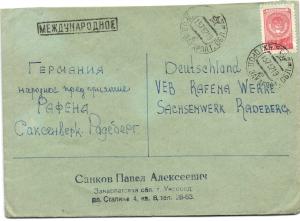 МЕЖДУНАРОДНОЕ
Германия
народное предприятие
Рафена
Саксенверк Радеберг
Deutschland
VEB RAFENA WERKE
SACHSENWERK RADEBERG
Санков Павел Алексеевич
Закарпатская обл. г. Ужгород
ул. Сталина 4, кв. 8, тел. 28-63.